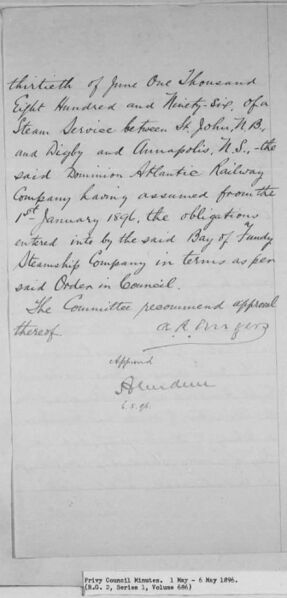 thirtieth of June One Thousand
Eight Hundred and Ninety-six, of a
Steam Service between St. John, N.B.,
and Digby and Annapolis, N.S., - the
said Dominion Atlantic Railway
Company having assumed from the
1st January 1896, the obligations
entered into by the said Bay of Fundy
Steamship Company in terms as per
said Order in Council.
The Committee recommend approval
thereof.
Approved
Aberdeen
6.5.96
Privy Council Minutes. 1 May - 6 May 1896.
(R.G. 2, Series 1, Volume 686)